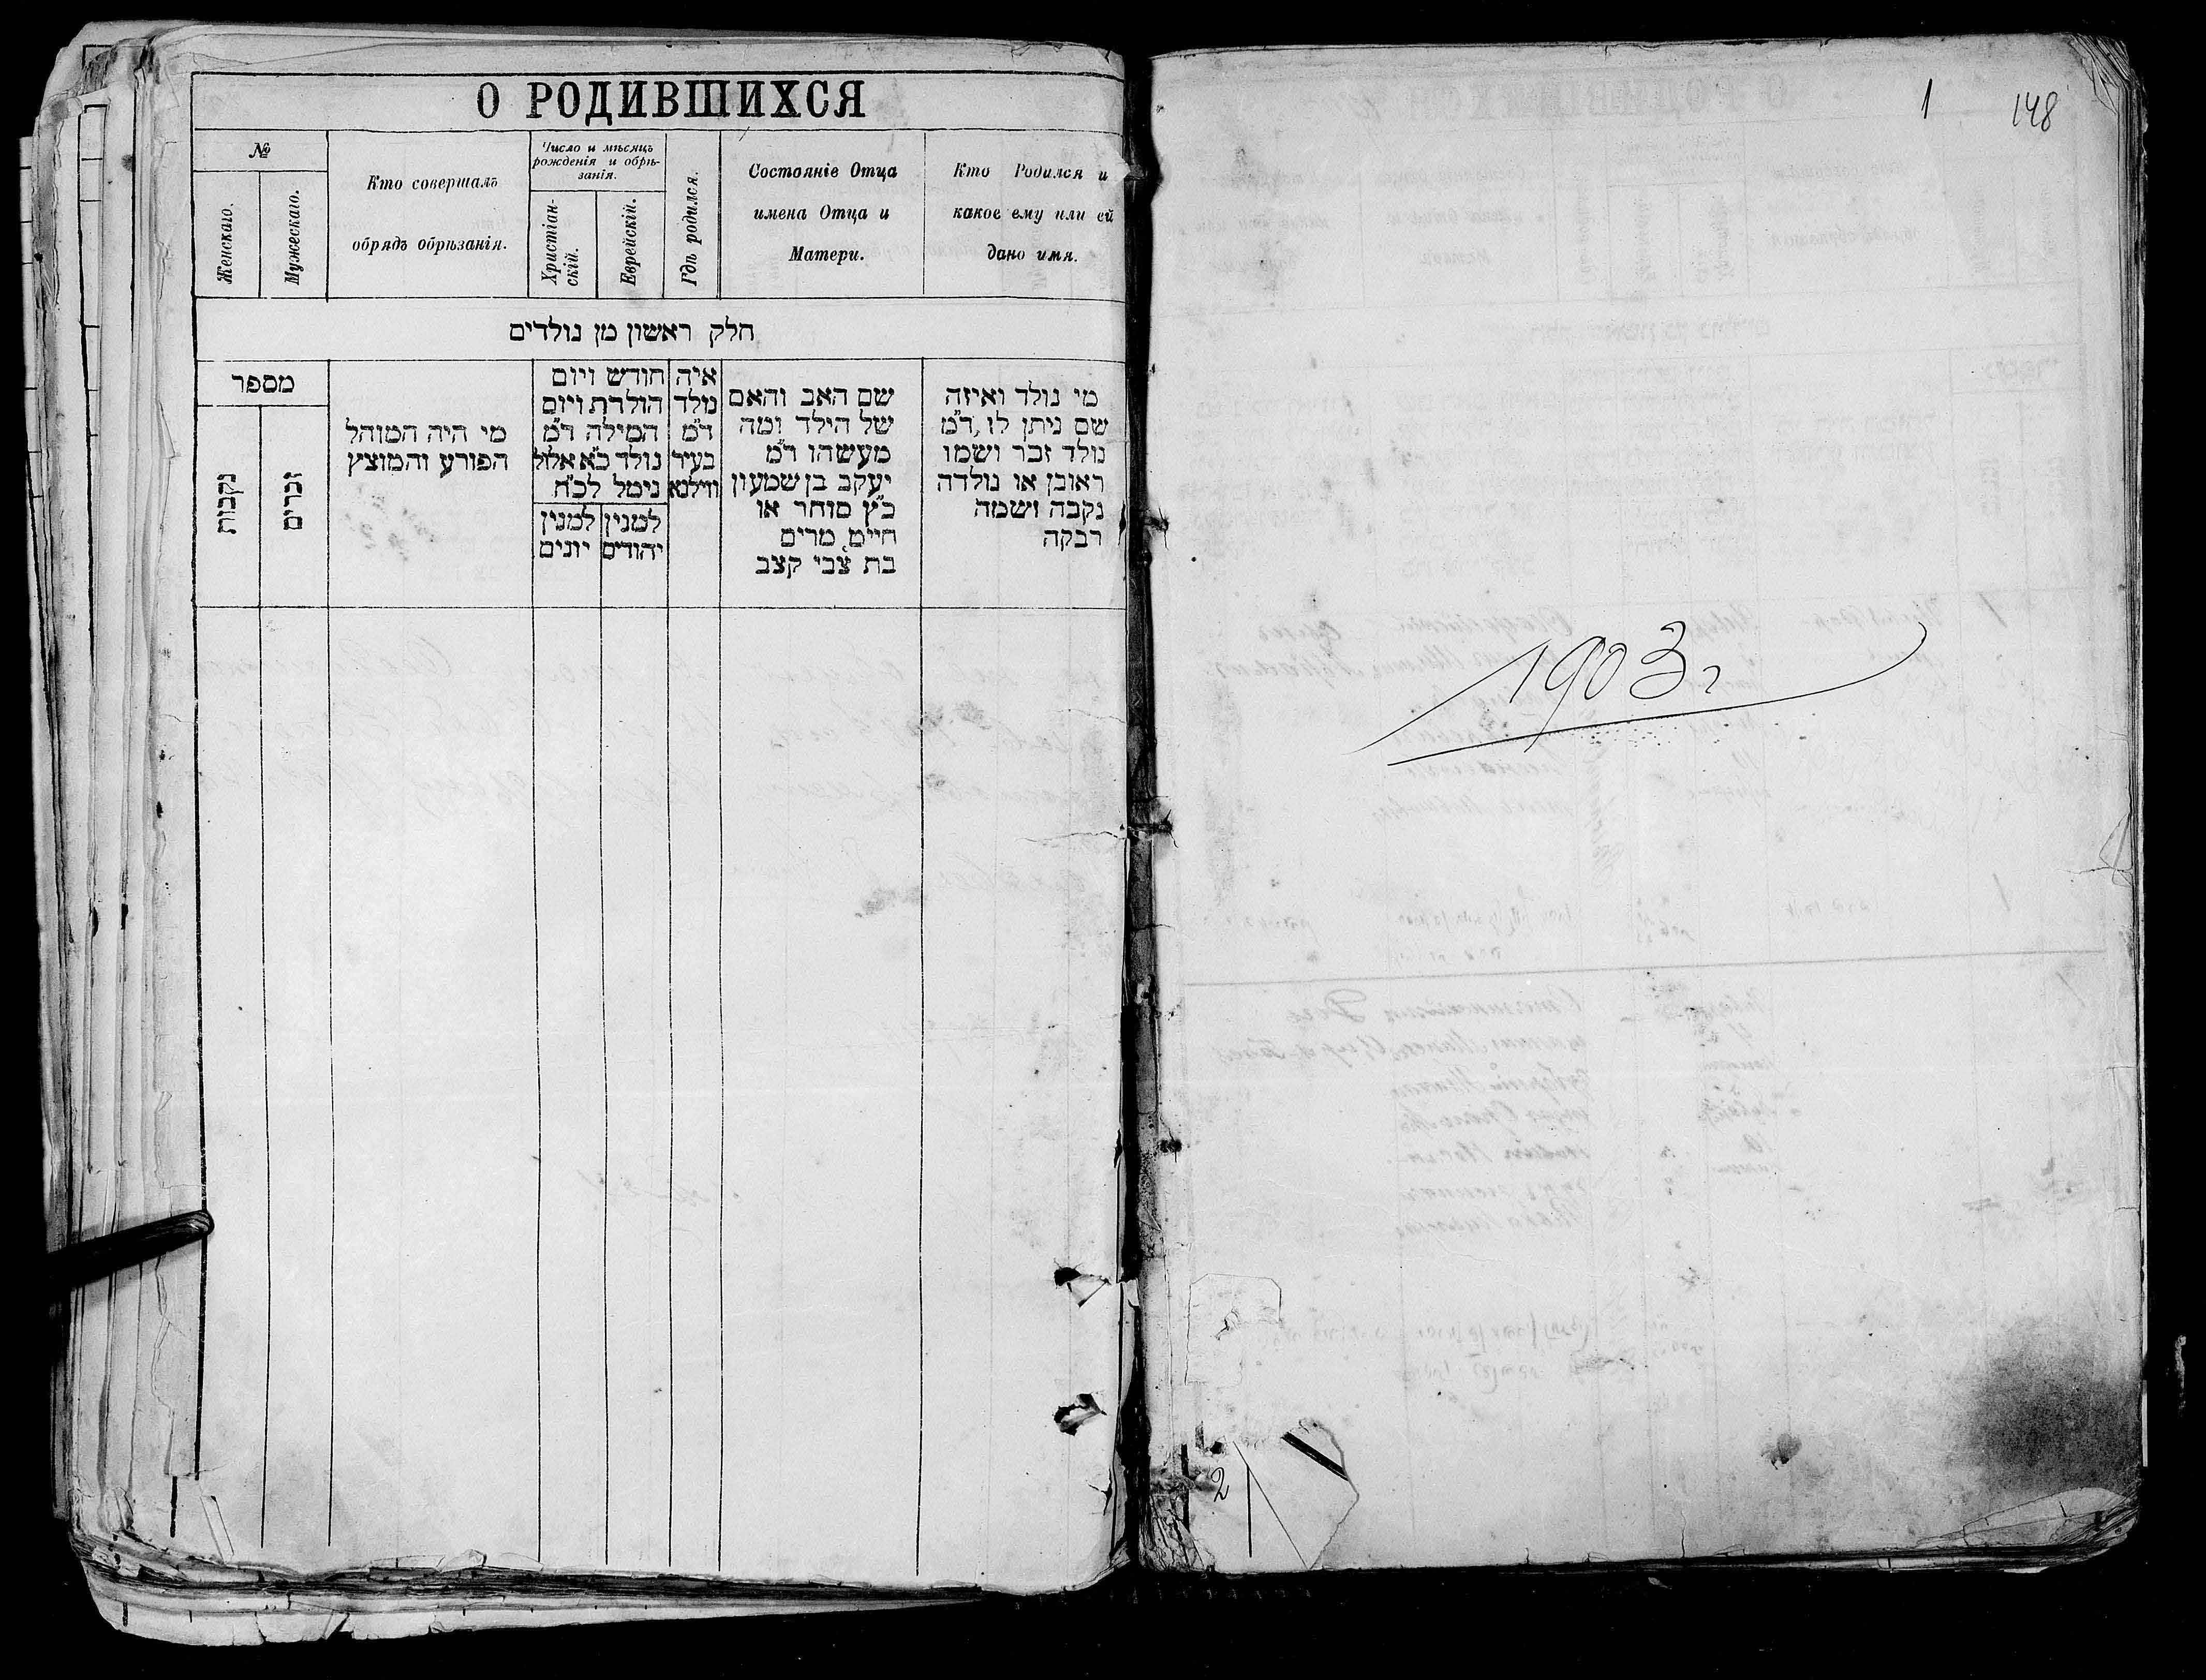 О РОДИВШИХСЯ
№
Женскаго.
Мужескаго.
Кто совершалъ
обрядъ обрѣзанія.
Число и мѣсяцъ
рожденія и обрѣ-
занія.
Христіан-
скій.
Еврейскій.
Гдѣ родился.
Состояніе Отца
имена Отца и
Матери.
Кто Родился и
какое ему или ей
дано имя.
חלק ראשון מן נולדים
מספר
נקבות
זכרים
מי היה המוהל
הפורע והמוצץ
חודש ויום
הולדת ויום
המילה ד״מ
נולד כ״א אלול
נימל לכ״ח
למנין
יונים
למנין
יהודים
איה
נולד
ד״מ
בעיר
ווילנא
שם האב והאם
של הילד ומה
מעשהו ד״מ
יעקב בן שמעון
כ״ץ סוחר או
חיים מרים
בת צבי קצב
מי נולד ואיזה
שם ניתן לו, ד״מ
נולד זכר ושמו
ראובן או נולדה
נקבה ושמה
רבקה
1
148
1903 г
2